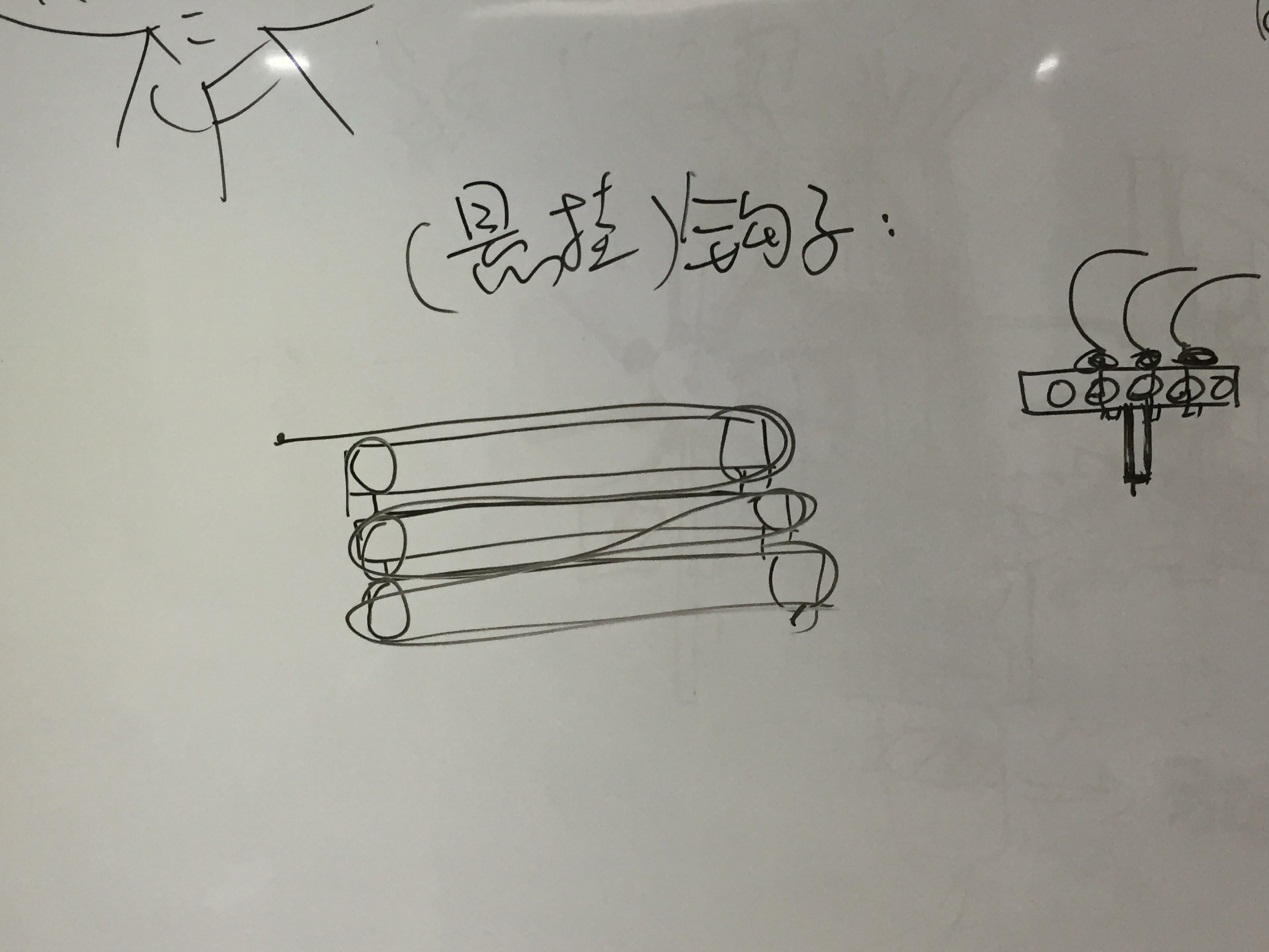 (悬挂)钩子: